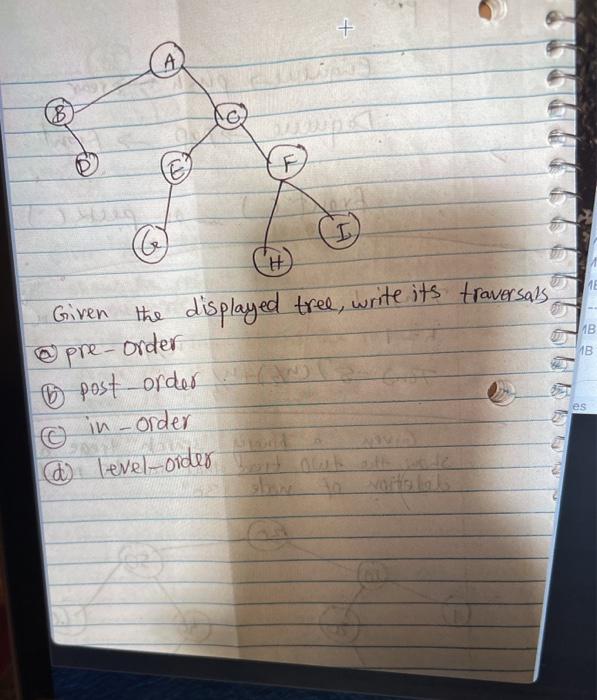 A
B
C
D
E
F
G
I
H
Given the displayed tree, write its traversals
a pre-order
b post-order
c in-order
d level-order
1B
1B
es